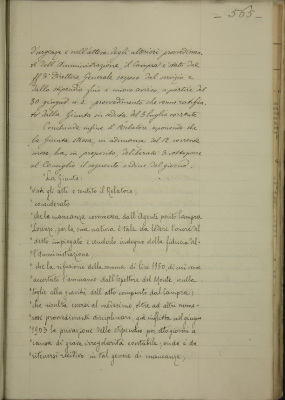 - 565 -
d'urgenza e nell'attesa degli ulteriori provvedimenti
dell'Amministrazione, il Campra è stato dal
ff. di Direttore Generale sospeso dal servizio e
dallo stipendio fino a nuovo avviso, a partire dal
30 giugno u. s. provvedimento che venne ratifica
to dalla Giunta in seduta del 3 luglio corrente
Conchiude infine il Relatore esponendo che
la Giunta stessa, in adunanza del 12 corrente
mese ha, in proposito, deliberato di sottoporre
al Consiglio il seguente ordine del giorno:
"La Giunta:
"visti gli atti e sentito il Relatore;
"considerato
"che la mancanza commessa dall'agente Campra
"Lorenzo, per la sua natura è tale da ledere l'onore del
"detto impiegato e renderlo indegno della fiducia del-
"l'Amministrazione
"che la rifusione della somma di lire 1950, di cui venne
"accertato l'ammanco dall'Ispettore del Monte, nulla
"toglie alla gravità dell'atto compiuto dal Campra;
"che risulta essersi al medesimo, oltre ad altri nume-
"rosi provvedimenti disciplinari, già inflitta nel giugno
"1903 la privazione dello stipendio per otto giorni a
"causa di grave irregolarità contabile, onde è da
"ritenersi recidivo in tal genere di mancanze;